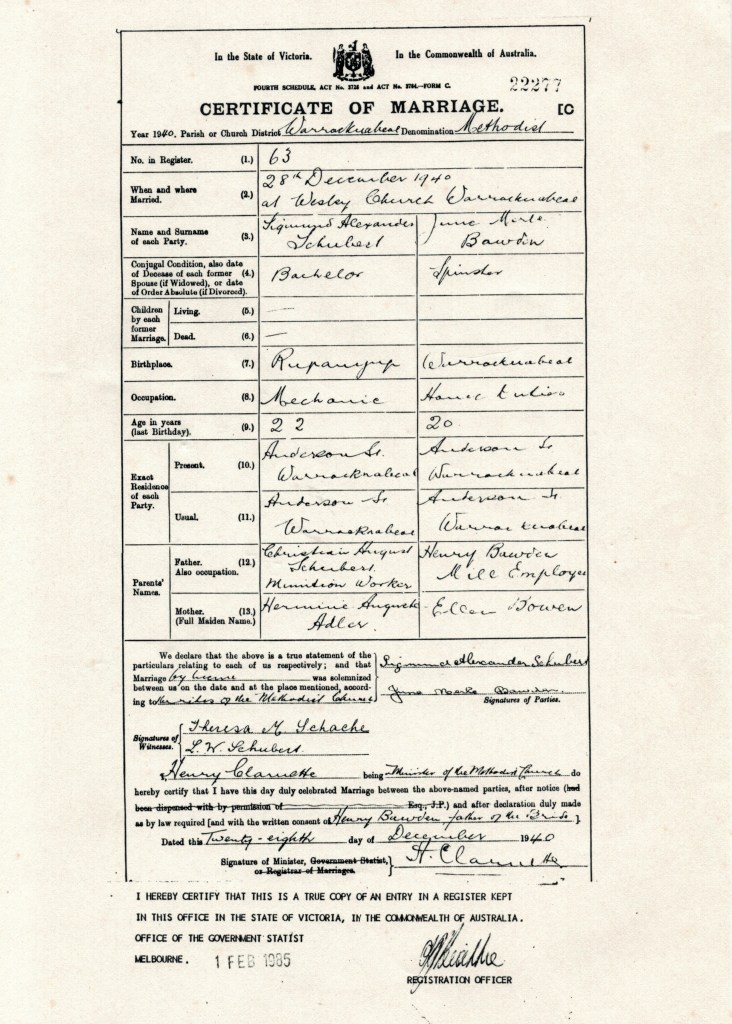 In the State of Victoria. In the Commonwealth of Australia.
FOURTH SCHEDULE, ACT No. 3726 and ACT No. 3764.—FORM C.
22277
CERTIFICATE OF MARRIAGE. [C
Year 1940. Parish or Church District Warracknabeal Denomination Methodist
No. in Register. (1.) 63
When and where Married. (2.) 28th December 1940
at Wesley Church Warracknabeal
Name and Surname of each Party. (3.) Sigmund Alexander Schubert June Merle Bawden
Conjugal Condition, also date
of Decease of each former (4.) Bachelor Spinster
Spouse (if Widowed), or date
of Order Absolute (if Divorced).
Children by each former Marriage.
Living. (5.) —
Dead. (6.) —
Birthplace. (7.) Rupanyup Warracknabeal
Occupation. (8.) Mechanic Home Duties
Age in years (last Birthday). (9.) 22 20
Exact Residence of each Party.
Present. (10.) Anderson St. Warracknabeal Anderson St. Warracknabeal
Usual. (11.) Anderson St Warracknabeal Anderson St. Warracknabeal
Parents' Names.
Father. (12.) Also occupation. Christian August Schubert. Munition Worker Henry Bawden Mill Employe
Mother. (13.) (Full Maiden Name.) Hermine Auguste Adler. Ellen Bowen
We declare that the above is a true statement of the
particulars relating to each of us respectively; and that
Marriage by license was solemnized
between us on the date and at the place mentioned, accord-
ing to the rites of the Methodist Church
Sigmund Alexander Schubert
June Merle Bawden
Signatures of Parties.
Signatures of Witnesses. Theresa M. Schache
L. W. Schubert.
I, Henry Clarnette being Minister of the Methodist Church do
hereby certify that I have this day duly celebrated Marriage between the above-named parties, after notice (had
been dispensed with by permission of Esq., J.P.) and after declaration duly made
as by law required [and with the written consent of Henry Bawden father of the Bride]
Dated this Twenty-eighth day of December 1940
Signature of Minister, Government Statist,
or Registrar of Marriages. H. Clarnette
I HEREBY CERTIFY THAT THIS IS A TRUE COPY OF AN ENTRY IN A REGISTER KEPT
IN THIS OFFICE IN THE STATE OF VICTORIA, IN THE COMMONWEALTH OF AUSTRALIA.
OFFICE OF THE GOVERNMENT STATIST
MELBOURNE. 1 FEB 1985
REGISTRATION OFFICER